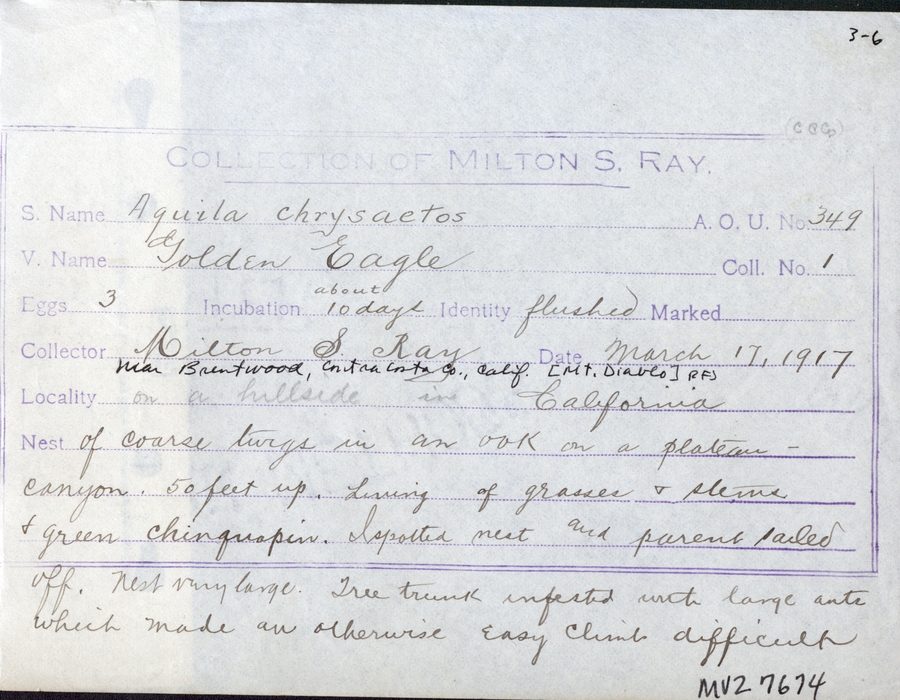 3-6
(CCCo)
COLLECTION OF MILTON S. RAY.
S. Name Aquila chrysaetos A. O. U. No. 349
V. Name Golden Eagle Coll. No. 1
about
Eggs 3 Incubation 10 days Identity flushed Marked
Collector Milton S. Ray Date March 17, 1917
near Brentwood, Contra Costa Co., Calif. [Mt. Diablo]
Locality on a hillside in California
Nest of coarse twigs in an oak on a plateau -
canyon. 50 feet up. Lining of grasses & stems
& green chinquapin. I spotted nest and parent sailed
off. Nest very large. Tree trunk infested with large ants
which made an otherwise easy climb difficult
MVZ 7674